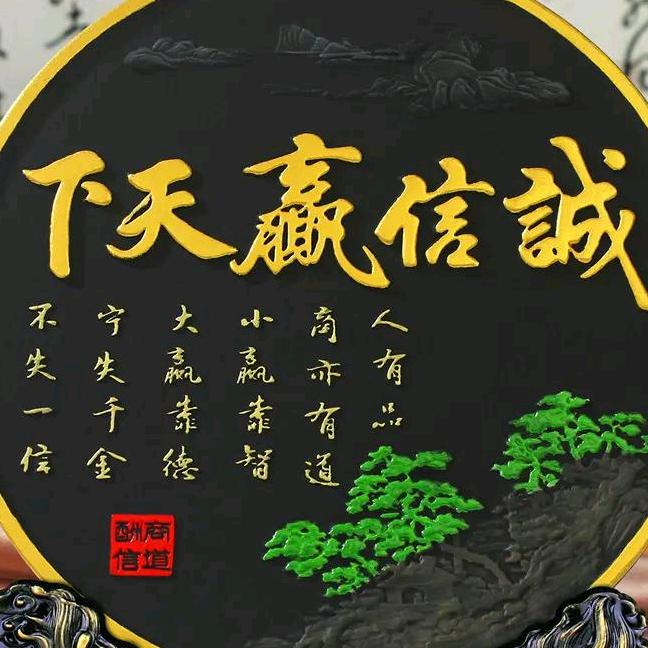 誠信贏天下
人有品
商亦有道
小贏靠智
大贏靠德
宁失千金
不失一信
商道
酬信